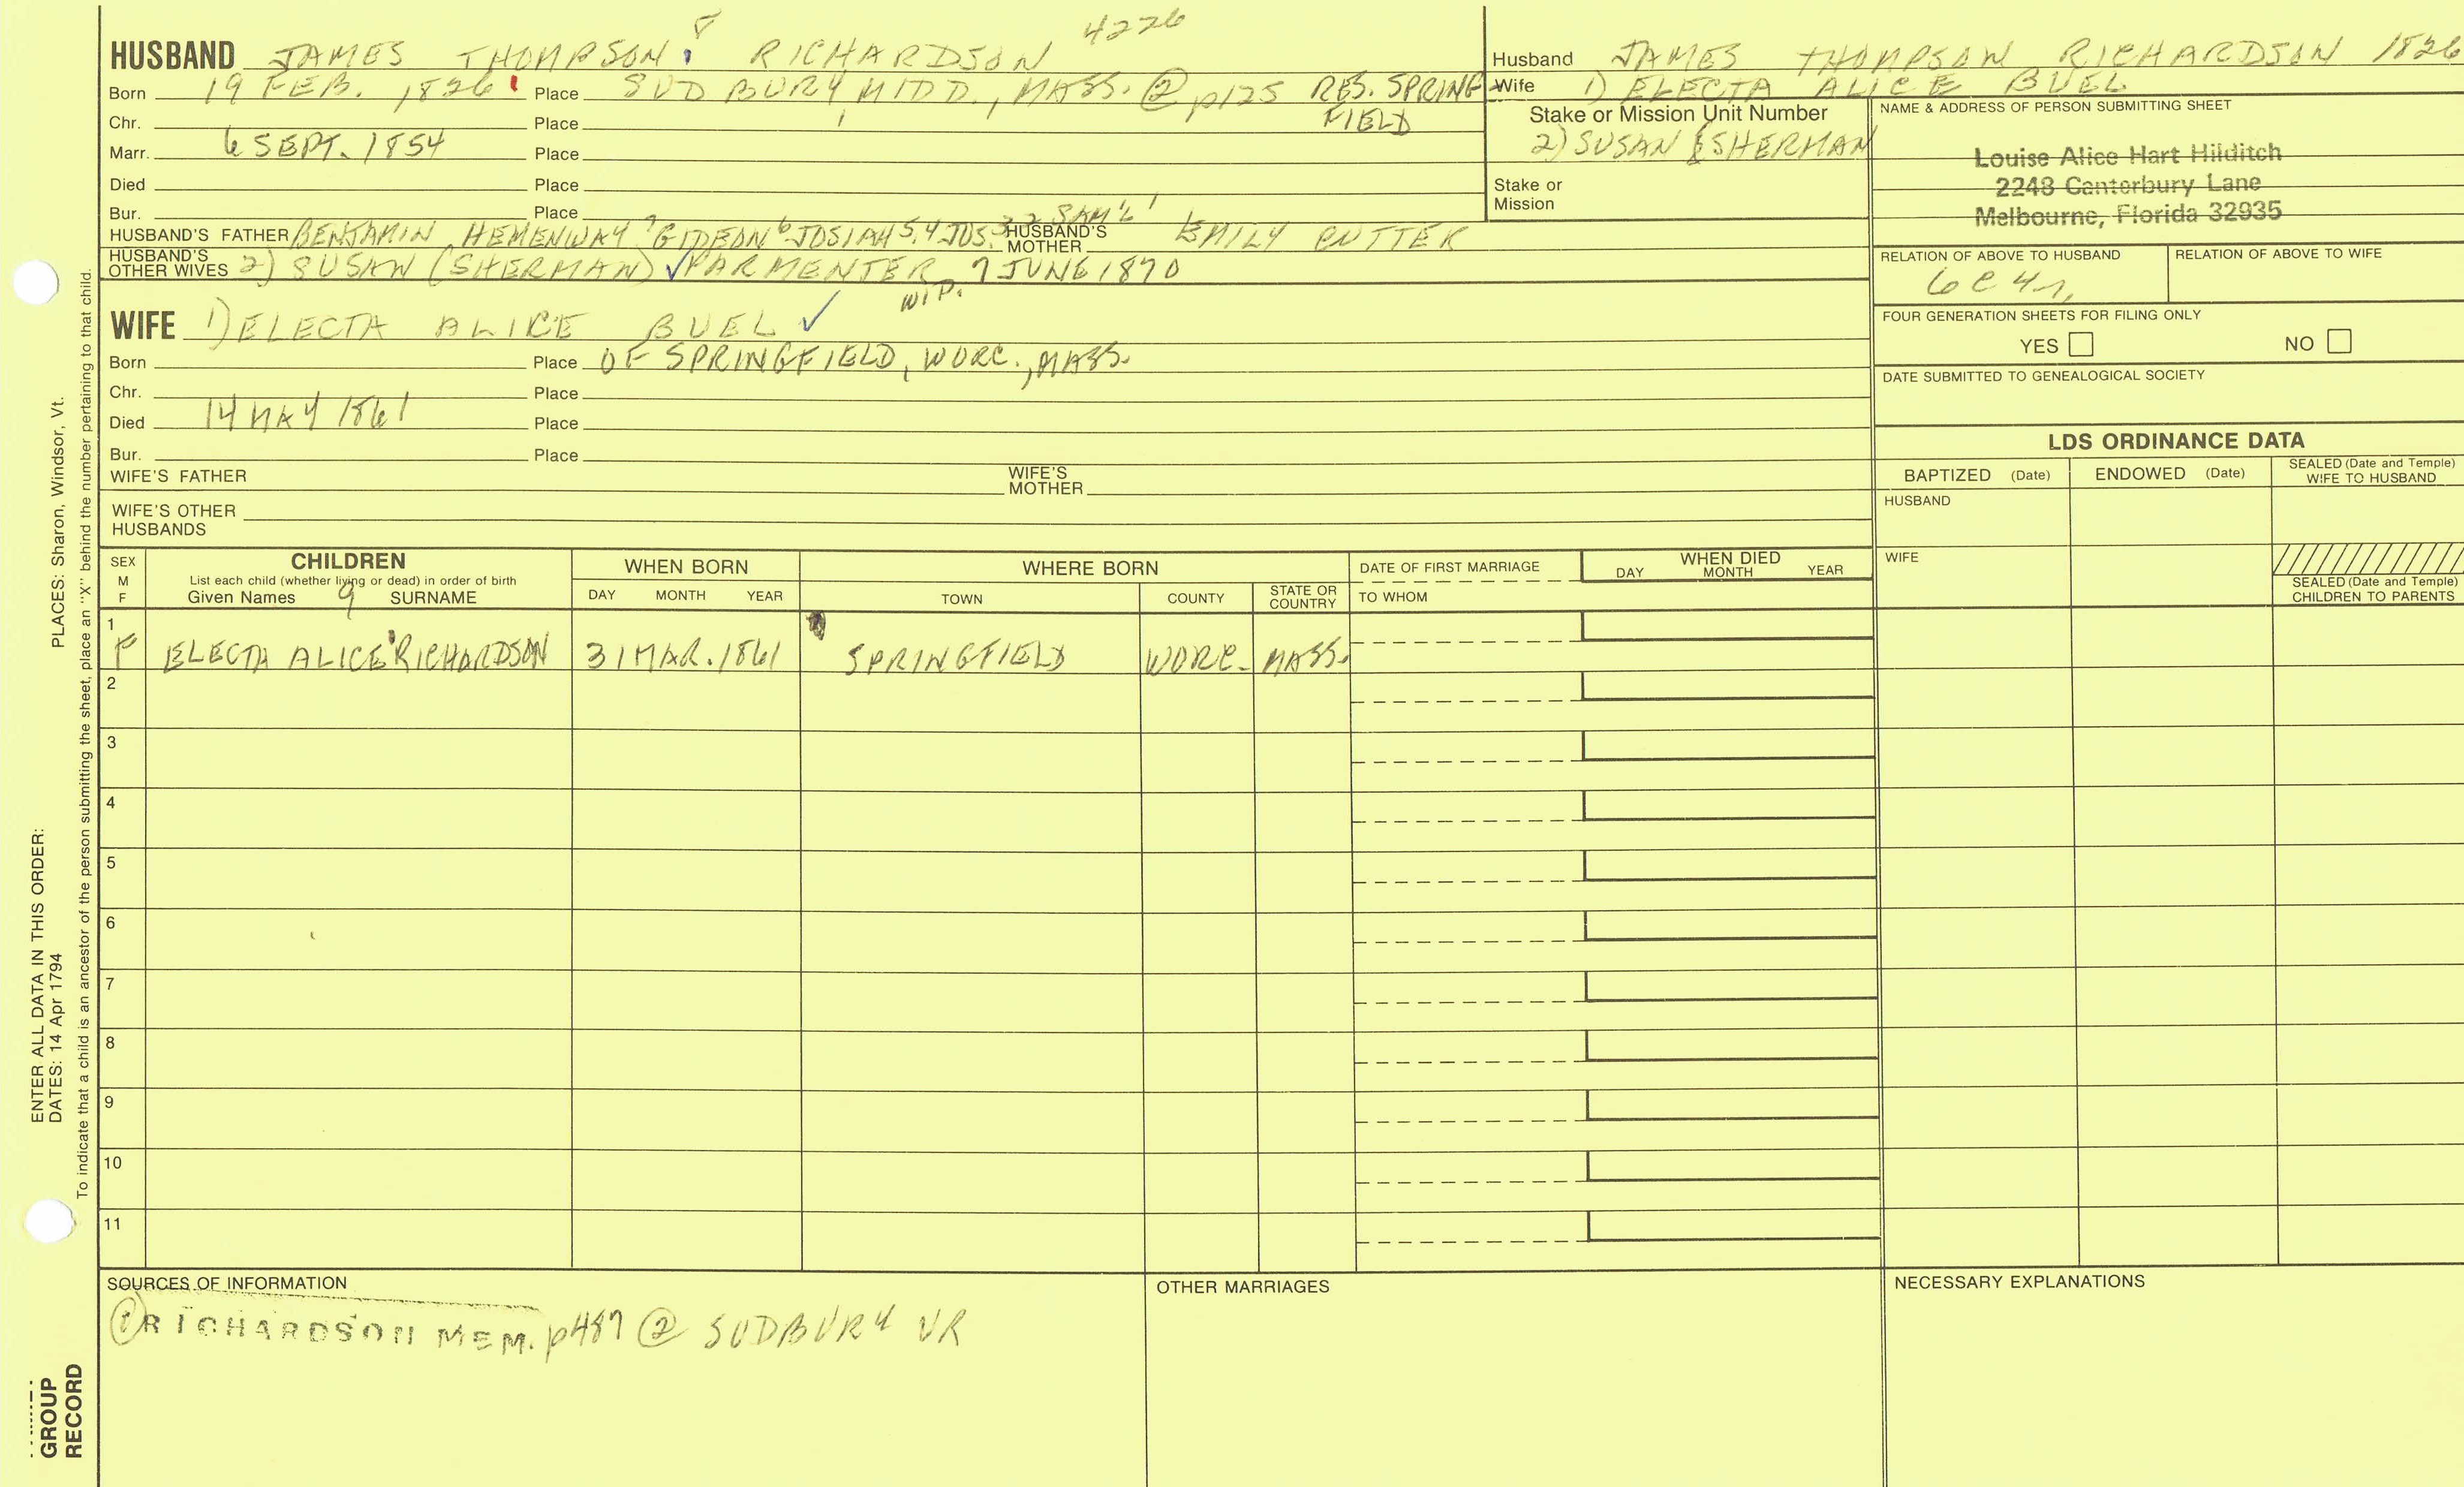 8 4226
HUSBAND JAMES THOMPSON RICHARDSON
Born 19 FEB. 1826 Place SUDBURY, MIDD., MASS. ② p125 RES. SPRING
FIELD
Chr. Place
Marr. 6 SEPT. 1854 Place
Died Place
Bur. Place
HUSBAND'S FATHER BENJAMIN HEMENWAY 7 GIDEON 6 JOSIAH 5,4 JOS. 3 2 SAM'L 1 HUSBAND'S MOTHER EMILY CUTTER
HUSBAND'S OTHER WIVES 2) SUSAN (SHERMAN) ✓ PARMENTER 7 JUNE 1870
WIFE 1) ELECTA ALICE BUEL ✓
Born Place OF SPRINGFIELD, WORC., MASS.
Chr. Place
Died 14 MAY 1861 Place
Bur. Place
WIFE'S FATHER WIFE'S MOTHER
WIFE'S OTHER HUSBANDS
Husband JAMES THOMPSON RICHARDSON 1826
Wife 1) ELECTA ALICE BUEL
Stake or Mission Unit Number
2) SUSAN SHERMAN
Stake or
Mission
NAME & ADDRESS OF PERSON SUBMITTING SHEET
Louise Alice Hart Hilditch
2248 Canterbury Lane
Melbourne, Florida 32935
RELATION OF ABOVE TO HUSBAND RELATION OF ABOVE TO WIFE
6C4r
FOUR GENERATION SHEETS FOR FILING ONLY
YES NO
DATE SUBMITTED TO GENEALOGICAL SOCIETY
LDS ORDINANCE DATA
BAPTIZED (Date) ENDOWED (Date) SEALED (Date and Temple) WIFE TO HUSBAND
HUSBAND
WIFE
SEALED (Date and Temple) CHILDREN TO PARENTS
SEX M F
CHILDREN
List each child (whether living or dead) in order of birth
Given Names 9 SURNAME
WHEN BORN
DAY MONTH YEAR
WHERE BORN
TOWN COUNTY STATE OR COUNTRY
DATE OF FIRST MARRIAGE
TO WHOM
WHEN DIED
DAY MONTH YEAR
1
F ELECTA ALICE RICHARDSON 31 MAR. 1861 SPRINGFIELD WORC. MASS.
2
3
4
5
6
7
8
9
10
11
SOURCES OF INFORMATION
① RICHARDSON MEM. p487 ② SUDBURY VR
OTHER MARRIAGES
NECESSARY EXPLANATIONS
ENTER ALL DATA IN THIS ORDER:
DATES: 14 Apr 1794 PLACES: Sharon, Windsor, Vt.
To indicate that a child is an ancestor of the person submitting the sheet, place an "X" behind the number pertaining to that child.
GROUP
RECORD